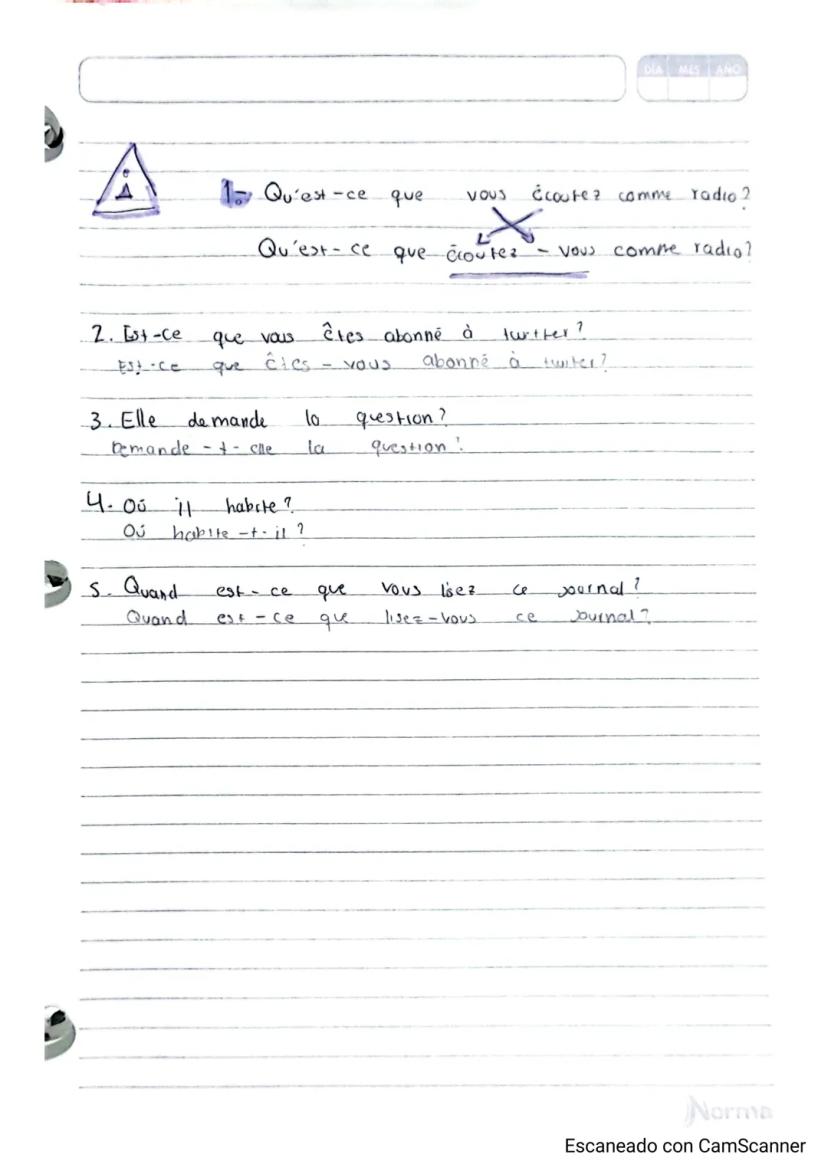 DÍA MES AÑO
1.- Qu'est-ce que vous écoutez comme radio?
Qu'est-ce que écoutez - vous comme radio?
2. Est-ce que vous êtes abonné à twitter?
Est-ce que êtes - vous abonné à twiter?
3. Elle demande la question?
Demande -t- elle la question?
4. Où il habite?
Où habite -t- il?
5. Quand est-ce que vous lisez ce journal?
Quand est-ce que lisez-vous ce journal?
Norma
Escaneado con CamScanner